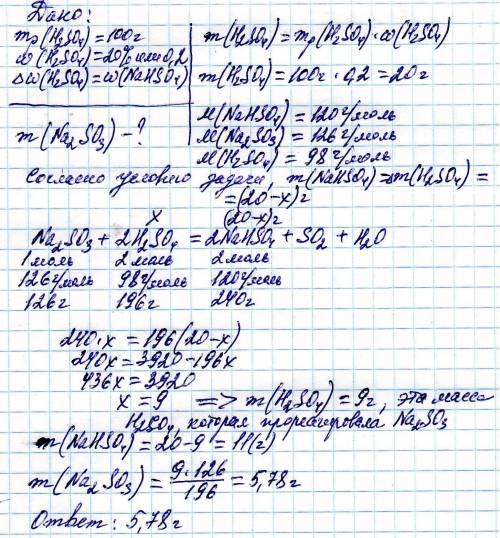 Дано:
mр(H₂SO₄)=100г
ω(H₂SO₄)=20% или 0,2
Δω(H₂SO₄)=ω(NaHSO₄)
m(Na₂SO₃)-?
m(H₂SO₄)=mр(H₂SO₄)·ω(H₂SO₄)
m(H₂SO₄)=100г·0,2=20г
M(NaHSO₄)=120г/моль
M(Na₂SO₃)=126г/моль
M(H₂SO₄)=98г/моль
Согласно условию задачи, m(NaHSO₄)=m(H₂SO₄)=
=(20-x)г
x (20-x)г
Na₂SO₃+2H₂SO₄=2NaHSO₄+SO₂+H₂O
1моль 2моль 2моль
126г/моль 98г/моль 120г/моль
126г 196г 240г
240·x=196(20-x)
240x=3920-196x
436x=3920
x=9 => m(H₂SO₄)=9г, эта масса
H₂SO₄, которая прореагировала Na₂SO₃
m(NaHSO₄)=20-9=11(г)
m(Na₂SO₃)=9·126/196=5,78г
Ответ: 5,78г